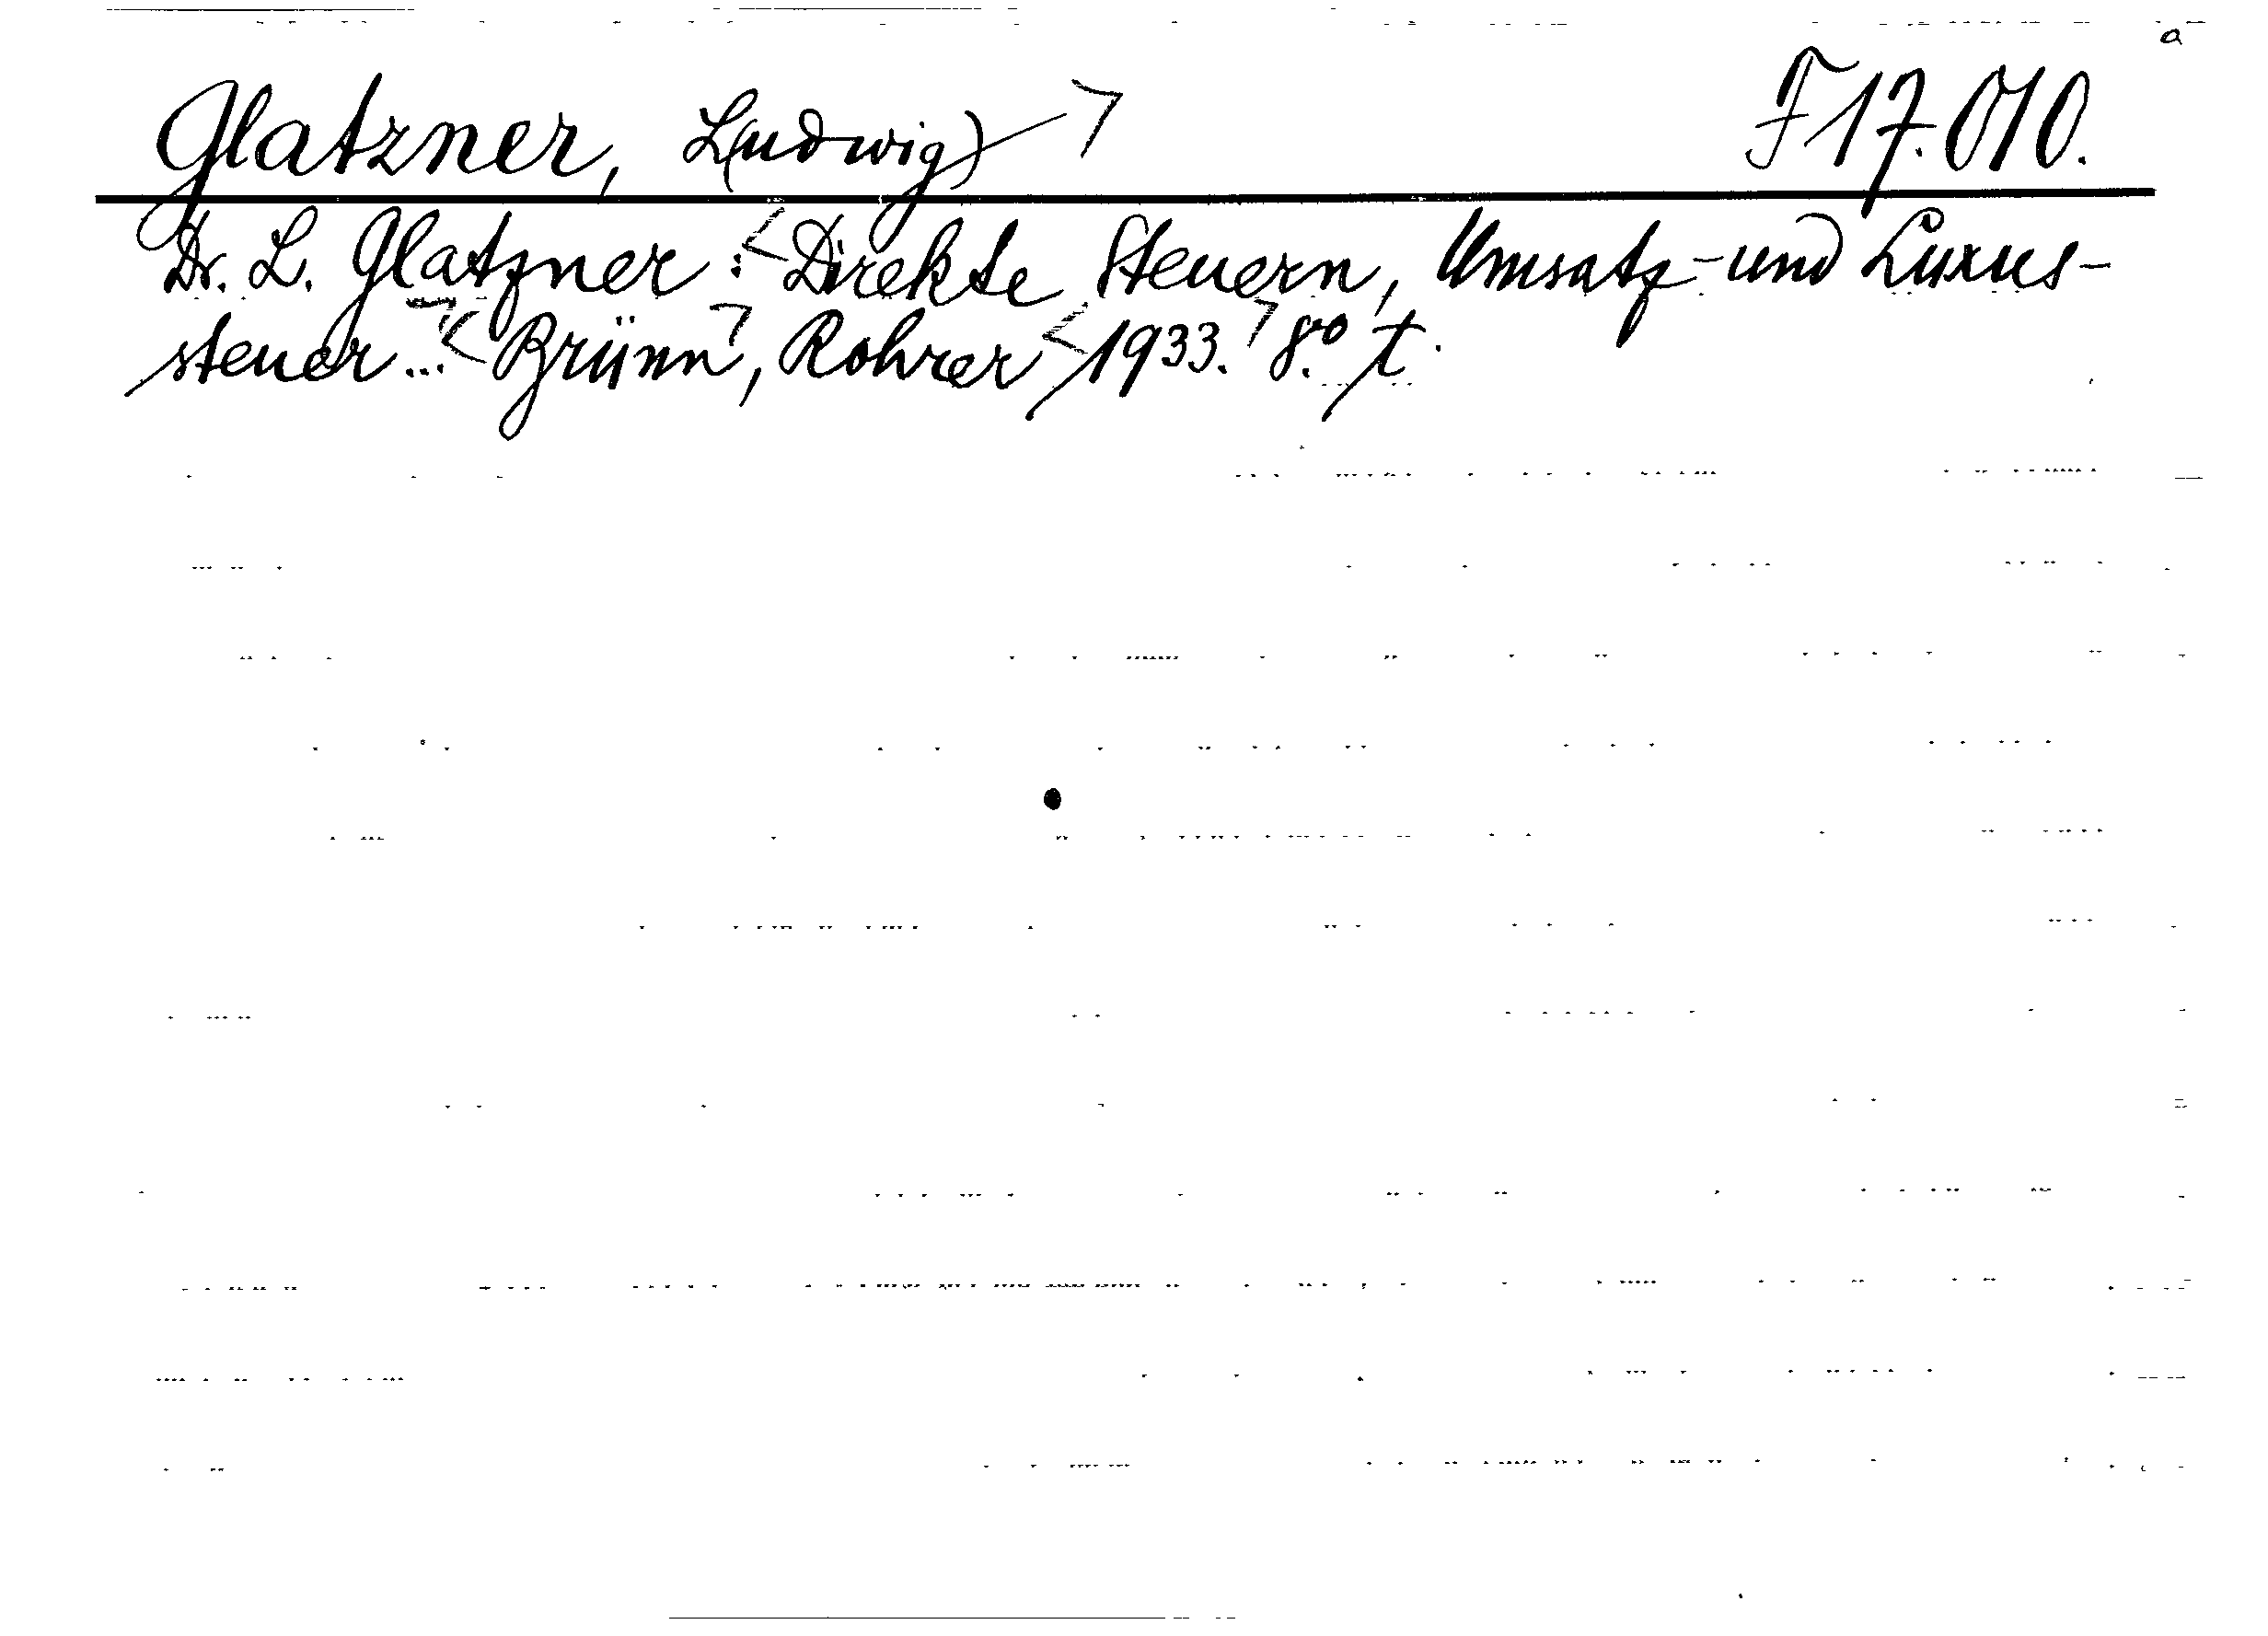 a
Glatzner, L(udwig) F 17.010.
Dr. L. Glatzner: Direkte Steuern, Umsatz- und Luxus-
steuer... Brünn, Rohrer 1933. 8.° t.